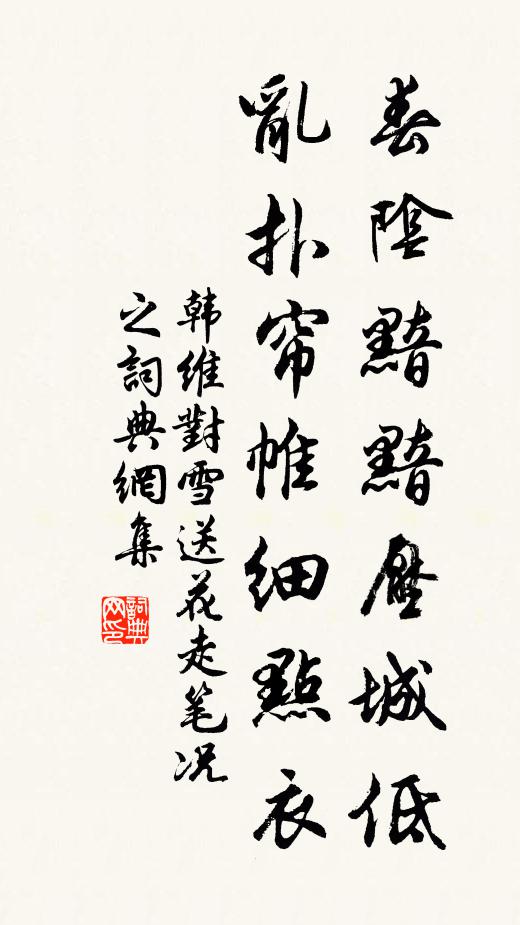 春陰黯黯壓城低
亂扑帘帷細點衣
韩維對雪送花走笔況
之詞典網集
詞典网印